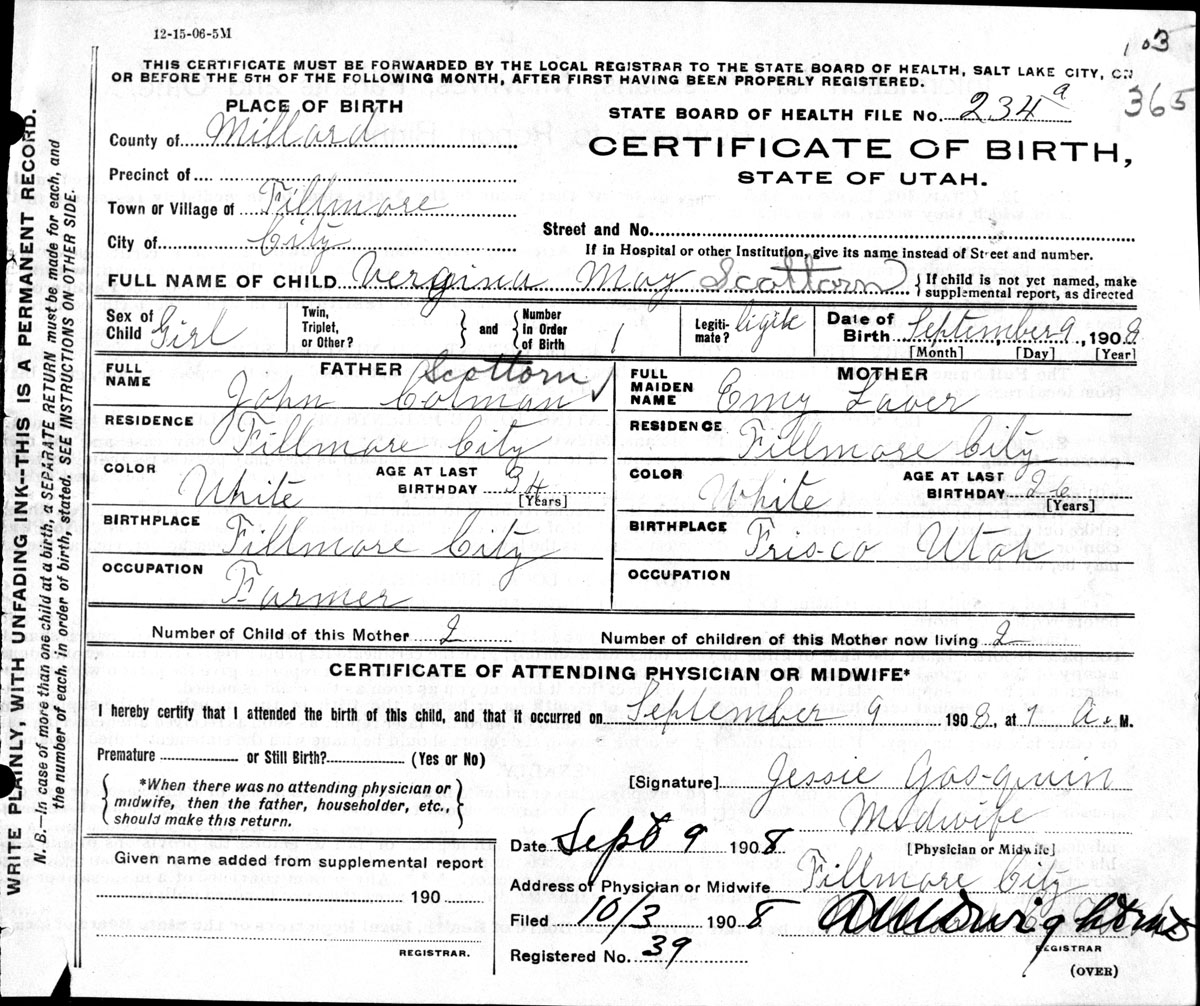 12-15-06-5M
103
THIS CERTIFICATE MUST BE FORWARDED BY THE LOCAL REGISTRAR TO THE STATE BOARD OF HEALTH, SALT LAKE CITY, ON
OR BEFORE THE 5TH OF THE FOLLOWING MONTH, AFTER FIRST HAVING BEEN PROPERLY REGISTERED.
365
PLACE OF BIRTH
STATE BOARD OF HEALTH FILE No. 234 a
County of Millard
CERTIFICATE OF BIRTH,
STATE OF UTAH.
Precinct of
Town or Village of Fillmore
City of City
Street and No.
If in Hospital or other Institution, give its name instead of Street and number.
FULL NAME OF CHILD Verginia May Scottorn { If child is not yet named, make supplemental report, as directed
Sex of Child Girl
Twin, Triplet, or Other? } and { Number in Order of Birth 1
Legitimate? ligite
Date of Birth September 9, 1908
[Month] [Day] [Year]
FATHER
FULL NAME John Colman Scottorn
MOTHER
FULL MAIDEN NAME Emy Laver
RESIDENCE Fillmore City
RESIDENCE Fillmore City
COLOR White AGE AT LAST BIRTHDAY 34 [Years]
COLOR White AGE AT LAST BIRTHDAY 26 [Years]
BIRTHPLACE Fillmore City
BIRTHPLACE Fris-co Utah
OCCUPATION Farmer
OCCUPATION
Number of Child of this Mother 2 Number of children of this Mother now living 2
CERTIFICATE OF ATTENDING PHYSICIAN OR MIDWIFE*
I hereby certify that I attended the birth of this child, and that it occurred on September 9 1908, at A. M.
Premature or Still Birth? (Yes or No)
*When there was no attending physician or midwife, then the father, householder, etc., should make this return.
[Signature] Jessie Gas-quin
Midwife
[Physician or Midwife]
Date Sept 9 1908
Given name added from supplemental report
190
REGISTRAR.
Address of Physician or Midwife Fillmore City
Filed 10/3 1908
REGISTRAR
Registered No. 39
(OVER)
WRITE PLAINLY, WITH UNFADING INK—THIS IS A PERMANENT RECORD.
N. B.—In case of more than one child at a birth, a SEPARATE RETURN must be made for each, and
the number of each, in order of birth, stated. SEE INSTRUCTIONS ON OTHER SIDE.